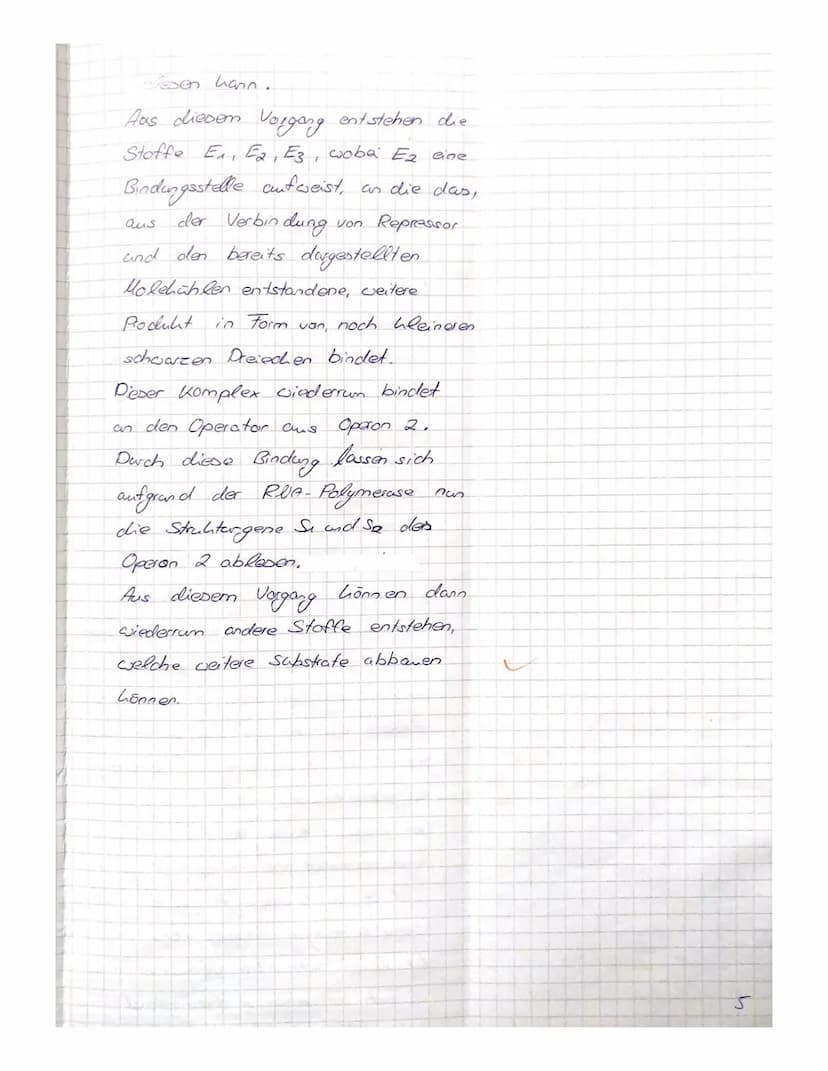 lesen kann.
Aus diesem Vorgang entstehen die
Stoffe E1, E2, E3, wobei E2 eine
Bindungsstelle aufweist, an die das,
aus der Verbindung von Repressor
und den bereits dargestellten
Molekühlen entstandene, weitere
Produkt in Form von, noch kleineren
schwarzen Dreiecken bindet.
Dieser Komplex wiederrum bindet
an den Operator aus Operon 2.
Durch diese Bindung lassen sich
aufgrund der RNA-Polymerase nun
die Strukturgene S1 und S2 des
Operon 2 ablesen.
Aus diesem Vorgang können dann
wiederrum andere Stoffe entstehen,
welche weitere Substrate abbauen
können.
5